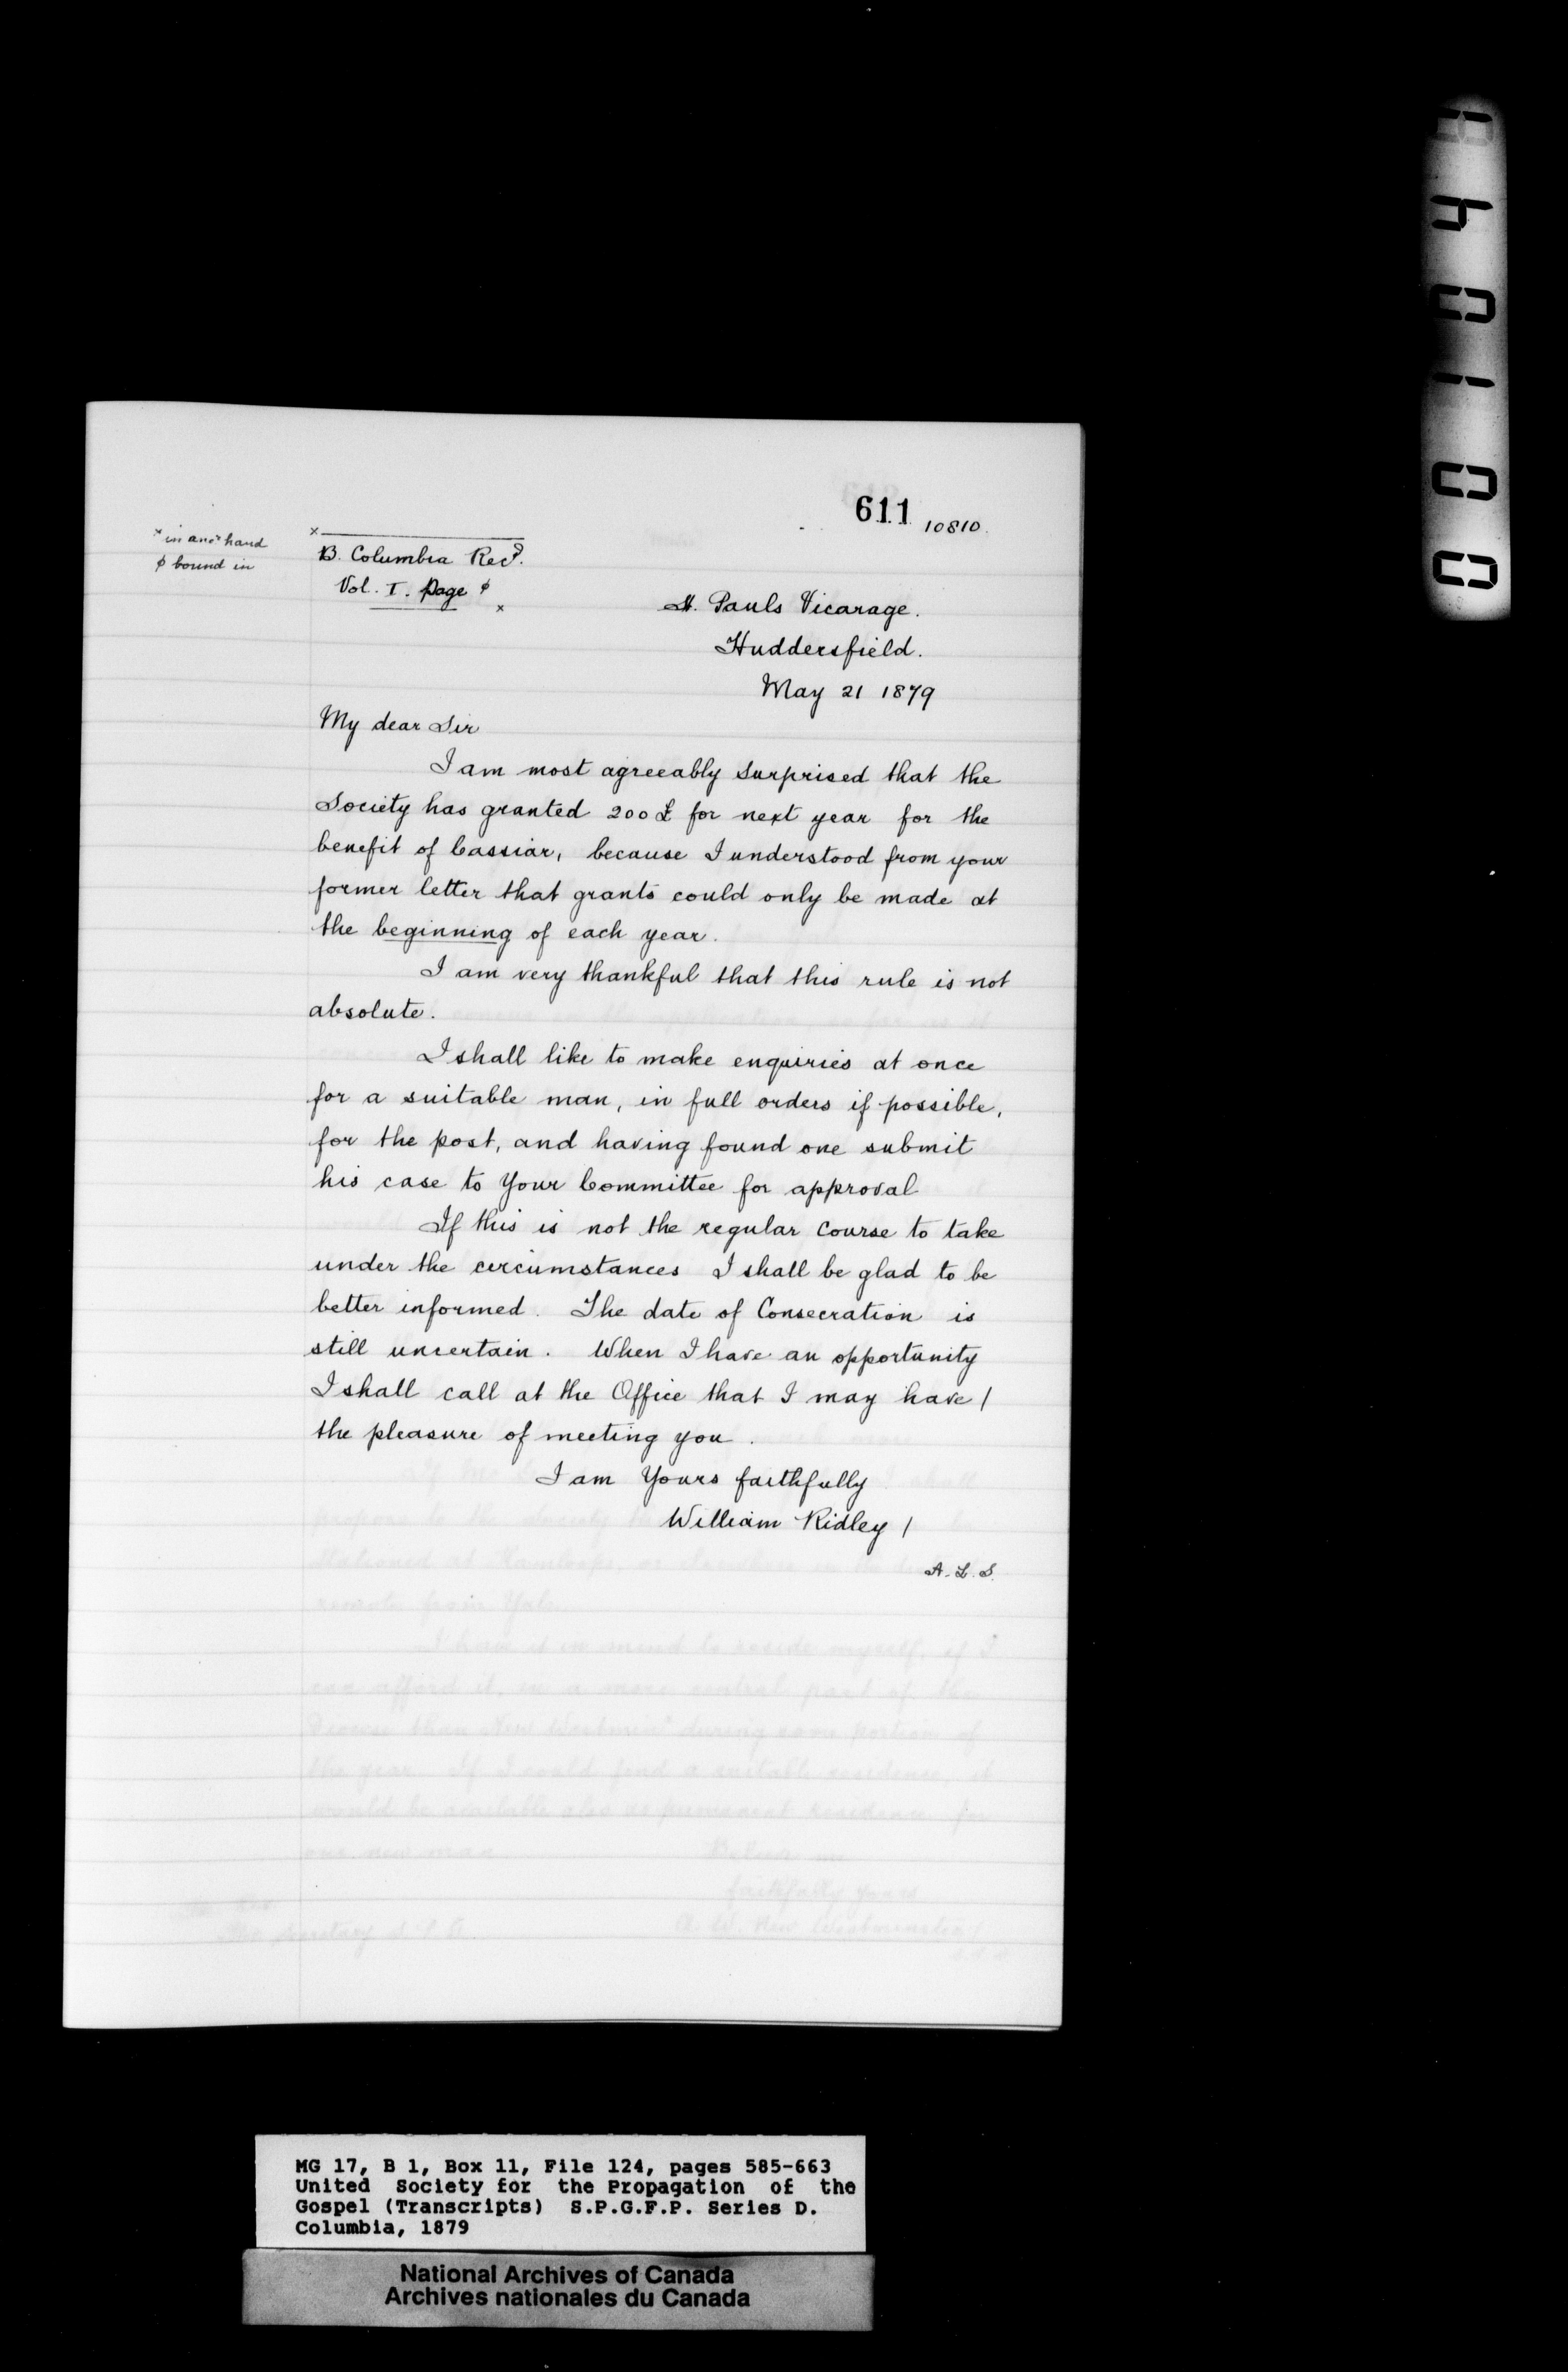 611 10810.
x in anor hand
φ bound in
x
B. Columbia Recd.
Vol. I. Page φ
x
St. Pauls Vicarage.
Huddersfield.
May 21 1879
My dear Sir
I am most agreeably surprised that the
Society has granted 200£ for next year for the
benefit of Cassiar, because I understood from your
former letter that grants could only be made at
the beginning of each year.
I am very thankful that this rule is not
absolute.
I shall like to make enquiries at once
for a suitable man, in full orders if possible,
for the post, and having found one submit
his case to Your Committee for approval
If this is not the regular course to take
under the circumstances I shall be glad to be
better informed. The date of Consecration is
still uncertain. When I have an opportunity
I shall call at the Office that I may have /
the pleasure of meeting you.
I am Yours faithfully
William Ridley /
A. L. S.
MG 17, B 1, Box 11, File 124, pages 585-663
United Society for the Propagation of the
Gospel (Transcripts) S.P.G.F.P. Series D.
Columbia, 1879
National Archives of Canada
Archives nationales du Canada